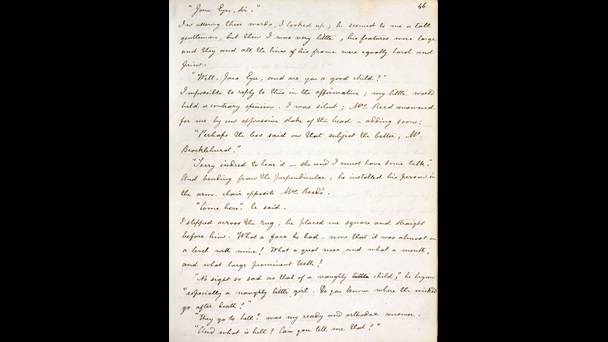 46
"Jane Eyre, sir."
In uttering these words, I looked up; he seemed to me a tall
gentleman, but then I was very little, his features were large
and they and all the lines of his frame were equally harsh and
prim.
"Well Jane Eyre, and are you a good child?"
Impossible to reply to this in the affirmative, my little world
held a contrary opinion. I was silent; Mrs. Reed answered
for me by an expressive shake of the head - adding soon:
"Perhaps the less said on that subject the better, Mr.
Brocklehurst."
"Sorry indeed to hear it - she and I must have some talk,"
And bending from the Perpendicular, he installed his person in
the arm-chair opposite Mrs. Reed's.
"Come here" he said.
I stepped across the rug, he placed me square and straight
before him. What a face he had - now that it was almost on
a level with mine! What a great nose, and what a mouth,
and what large prominent teeth!
"No sight so sad as that of a naughty little child," he began
"especially a naughty little girl. Do you know where the wicked
go after death?"
"They go to hell" was my ready and orthodox answer.
"And what is hell? Can you tell me that?"